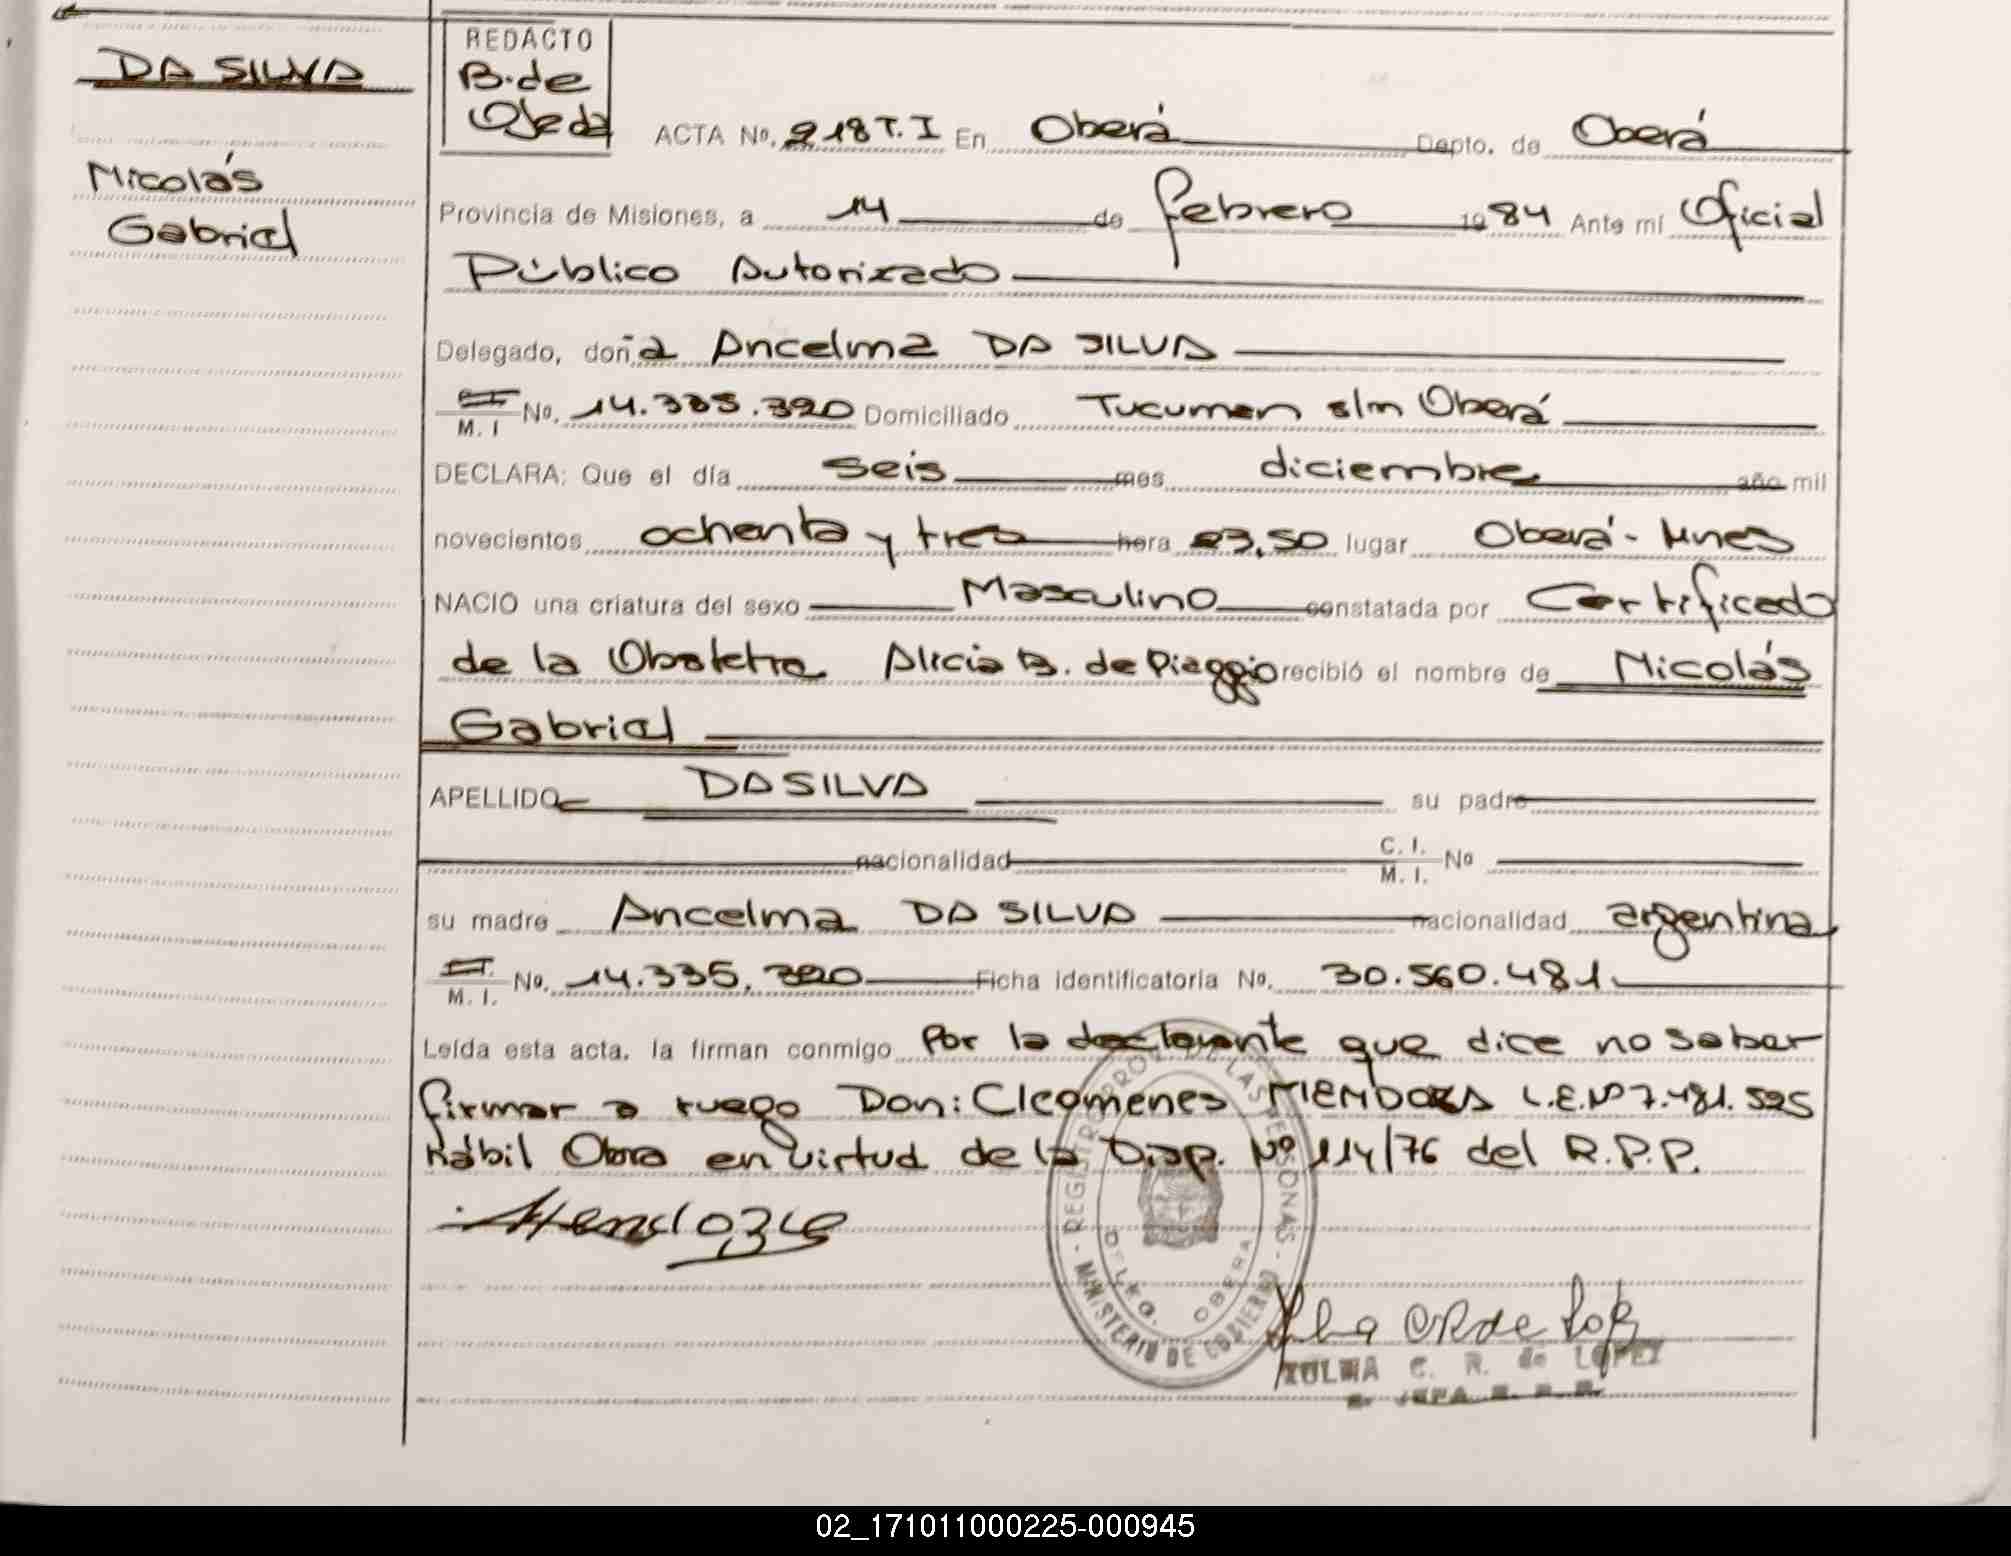 DA SILVA
Nicolás
Gabriel
REDACTO
B. de
Ojeda
ACTA No. 218 T. I En Oberá Depto. de Oberá
Provincia de Misiones, a 14 de febrero 1984 Ante mí Oficial
Público Autorizado
Delegado, doña Ancelma DA SILVA
M. I No. 14.335.320 Domiciliado Tucuman s/n Oberá
DECLARA: Que el día seis mes diciembre año mil
novecientos ochenta y tres hora 23,50 lugar Oberá - Mnes
NACIO una criatura del sexo Masculino constatada por Certificado
de la Obstetra Alicia B. de Piaggio recibió el nombre de Nicolás
Gabriel
APELLIDO DA SILVA su padre
nacionalidad C. I. M. I. No
su madre Ancelma DA SILVA nacionalidad argentina
M. I. No. 14.335.320 Ficha identificatoria No. 30.560.481
Leída esta acta, la firman conmigo Por la declarante que dice no saber
firmar a ruego Don: Cleomenes MENDOZA L.E.Nº 7.481.595
hábil Obra en virtud de la Disp. Nº 114/76 del R.P.P.
Mendoza
REGISTRO PROV. DE LAS PERSONAS
MINISTERIO DE GOBIERNO
OBERA
ZULMA C. R. de LOPEZ
02_171011000225-000945